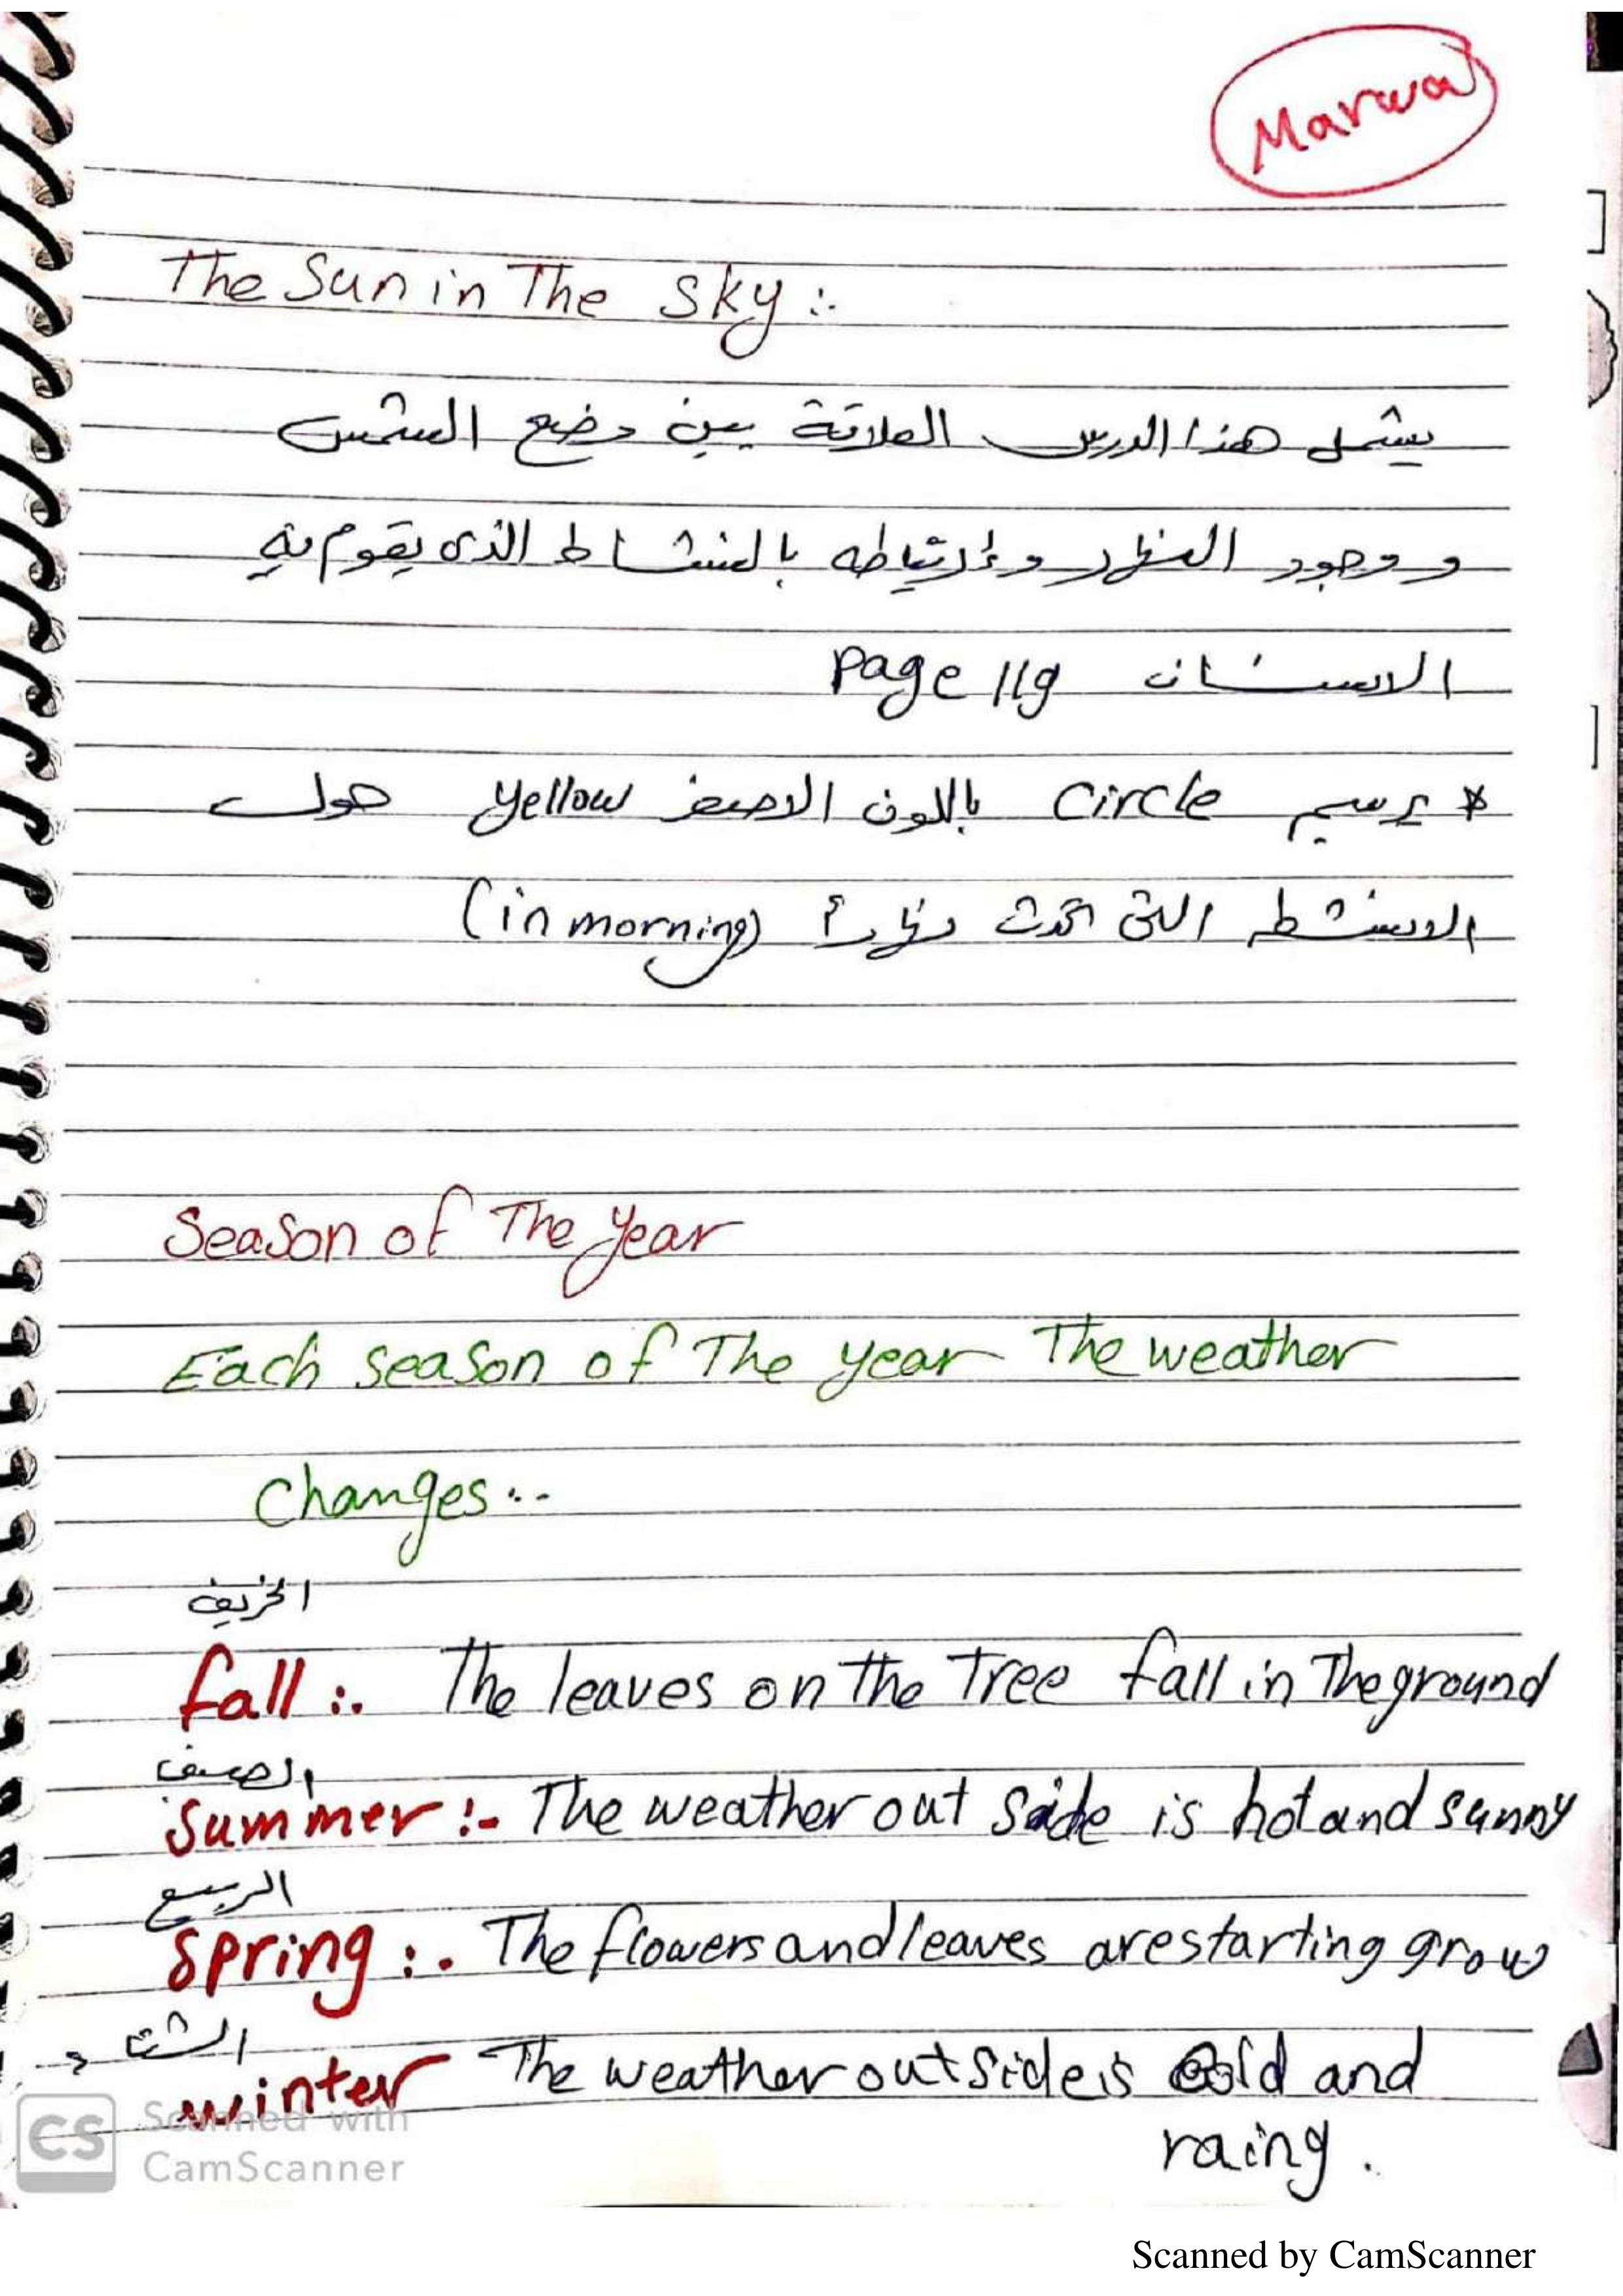 Marwa
The Sun in The Sky :.
يشمل هذا الدرس العلاقة بين وضع الشمس
و وجود النهار وإرتباطه بالنشاط الذى يقوم به
الانسان page 119
* يرسم circle باللون الاصفر yellow حول
الانشطه التى تحدث نهاراً (in morning)
Season of The year
Each season of The year The weather
changes..
الخريف
fall :. The leaves on the Tree fall in The ground
الصيف
Summer :- The weather out side is hot and sunny
الربيع
Spring :. The flowers and leaves are starting grow
الشتاء
winter The weather outside is cold and
raing.
CS Scanned with
CamScanner
Scanned by CamScanner